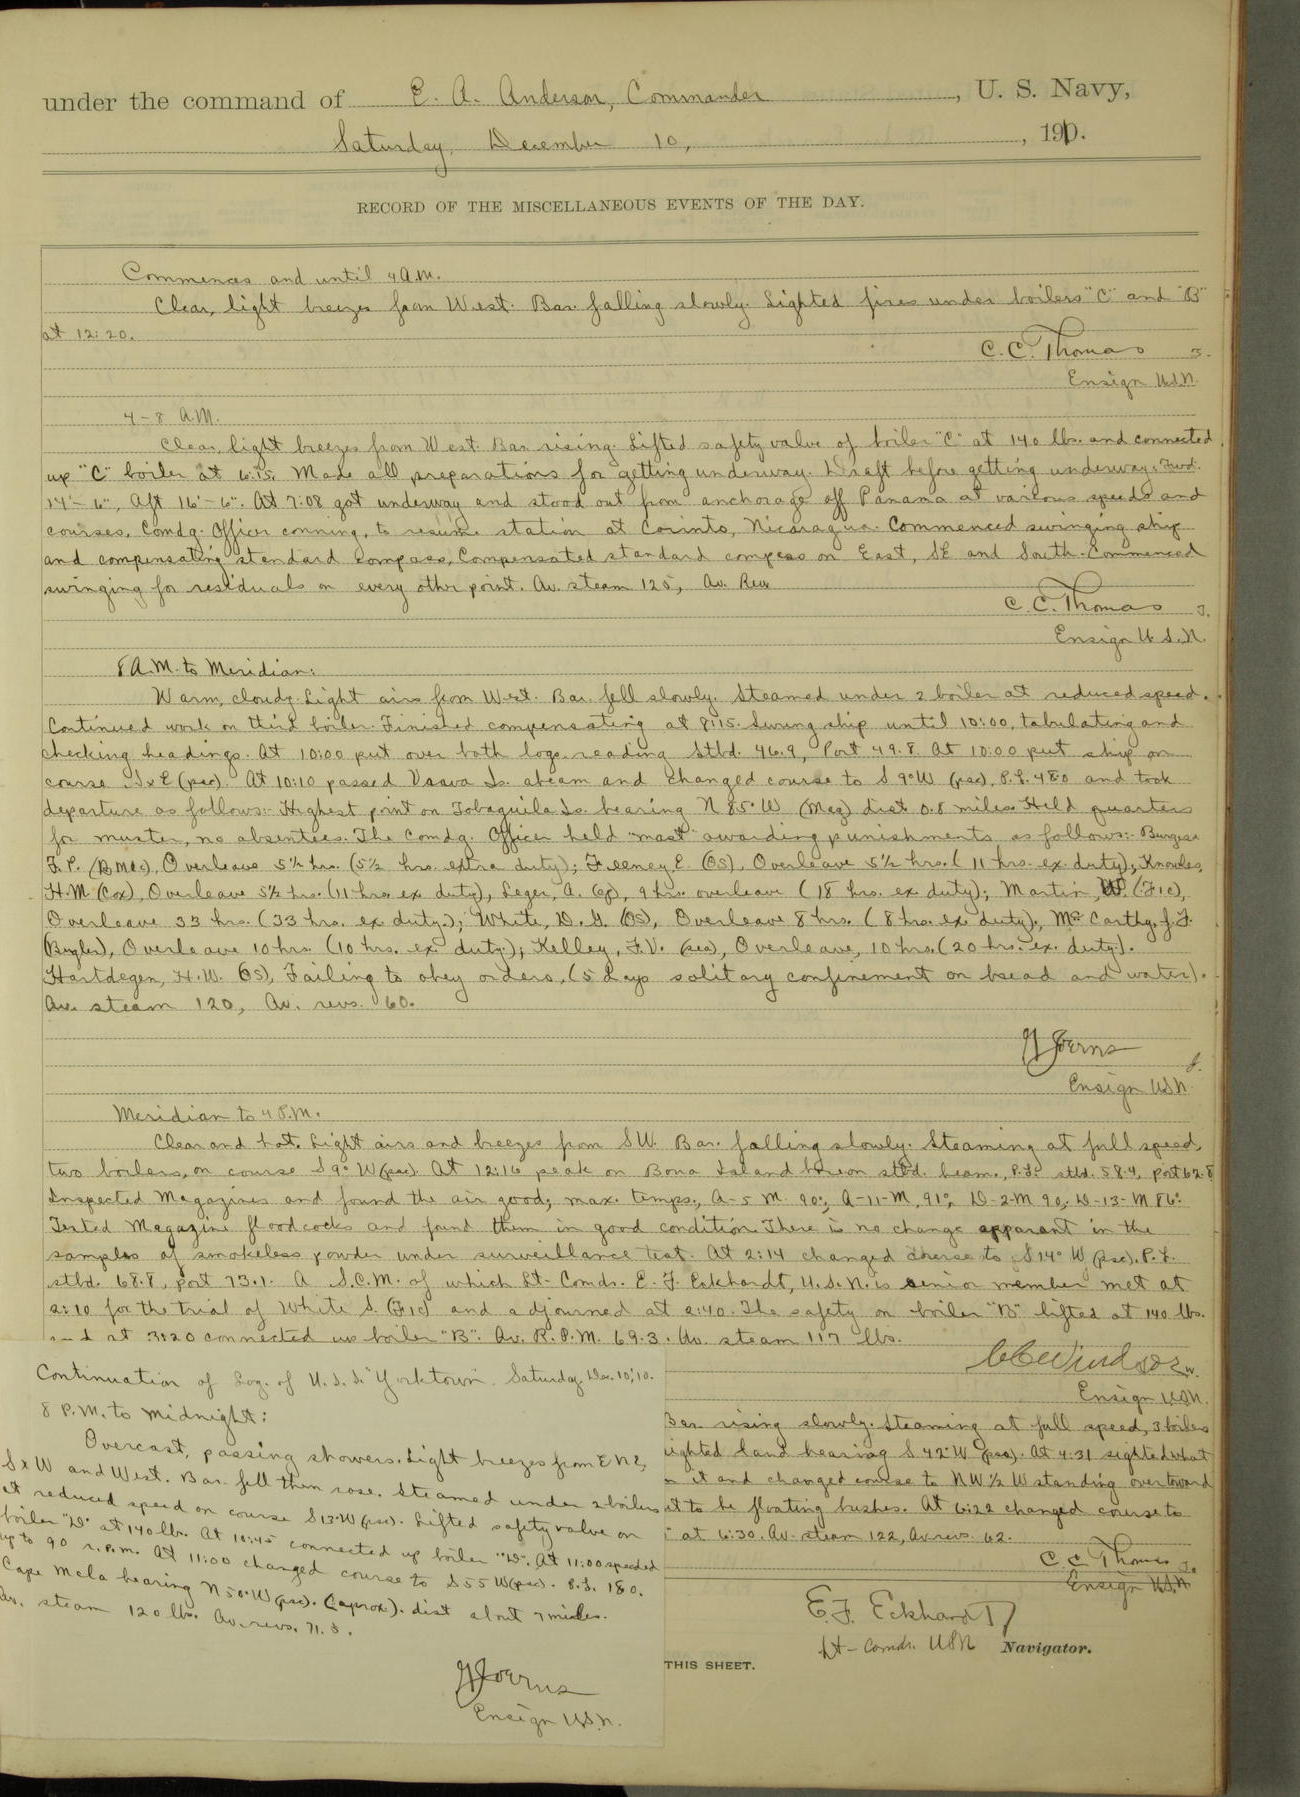 under the command of E. A. Anderson, Commander, U. S. Navy,
Saturday, December 10, 1910.
RECORD OF THE MISCELLANEOUS EVENTS OF THE DAY.
Commences and until 4 A.M.
Clear, light breezes from West. Bar. falling slowly. Lighted fires under boilers "C" and "B"
at 12:20.
C. C. Thomas
Ensign U.S.N.
4-8 A.M.
Clear, light breezes from West. Bar. rising. Lifted safety valve of boiler "C" at 140 lbs. and connected
up "C" boiler at 6:15. Made all preparations for getting underway. Draft before getting underway: Fwd.
14'-6", Aft 16'-6". At 7:08 got underway and stood out from anchorage off Panama at various speeds and
courses, Comdg. Officer conning, to resume station at Corinto, Nicaragua. Commenced swinging ship
and compensating standard compass, Compensated standard compass on East, SE and South. Commenced
swinging for residuals on every other point. Av. steam 125, Av. Rev
C. C. Thomas
Ensign U.S.N.
8 A.M. to Meridian:
Warm, cloudy. Light airs from West. Bar. fell slowly. Steamed under 2 boiler at reduced speed.
Continued work on third boiler. Finished compensating at 8:15. Swung ship until 10:00, tabulating and
checking headings. At 10:00 put over both logs reading Stbd. 46.9, Port 49.8. At 10:00 put ship on
course SxE (psc). At 10:10 passed Is. abeam and changed course to S 9° W (psc), P.L. 48.0 and took
departure as follows:- Highest point on Tobaguila Is. bearing N 85° W (Mag) dist 0.8 miles. Held quarters
for muster, no absentees. The Comdg. Officer held "mast" awarding punishments as follows:- Burgess
F. P. (BMC), Overleave 5½ hrs. (5½ hrs. extra duty); Feeney E. (OS), Overleave 5½ hrs. (11 hrs. ex. duty); Knowles,
H. M. (Cox), Overleave 5½ hrs. (11 hrs. ex duty), Leger, A. 9 hrs. overleave (18 hrs. ex duty); Martin, W. (F1c),
Overleave 33 hrs. (33 hrs. ex duty.); White, D. G. (OS), Overleave 8 hrs. (8 hrs. ex duty), McCarthy, J. F.
(Bugler), Overleave 10 hrs. (10 hrs. ex duty); Kelley, F. V. (sea), Overleave, 10 hrs. (20 hrs. ex. duty).
Hartdegen, H. W. (OS), Failing to obey orders, (5 days solitary confinement on bread and water).
Av. steam 120, Av. revs. 60.
Ensign U.S.N.
Meridian to 4 P.M.
Clear and hot. Light airs and breezes from SW. Bar. falling slowly. Steaming at full speed,
two boilers, on course S 9° W (psc). At 12:16 peak on Bona Island bore on stbd. beam, P.L. stbd. 58.4, port 62.8
Inspected Magazines and found the air good; max. temps., A-5 M. 90°, A-11-M, 91°, D-2-M 90, D-13-M 86°
Tested Magazine floodcocks and found them in good condition. There is no change apparent in the
samples of smokeless powder under surveillance test. At 2:14 changed course to S 14° W (psc). P.L.
stbd. 68.8, port 73.1. A S.C.M. of which Lt-Comdr. E. F. Eckhardt, U.S.N. is senior member met at
2:10 for the trial of White S. (F1c) and adjourned at 2:40. The safety on boiler "B" lifted at 140 lbs.
and at 3:20 connected up boiler "B". Av. R.P.M. 69.3. Av. steam 117 lbs.
C C Windsor
Ensign U.S.N.
Bar. rising slowly. Steaming at full speed, 3 boilers
sighted land bearing S 42° W (psc). At 4:31 sighted what
it and changed course to NW ½ W standing over toward
it to be floating bushes. At 6:22 changed course to
at 6:30. Av. steam 122, Av. revs. 62.
C. C. Thomas
Ensign U.S.N.
E. F. Eckhardt
Lt-Comdr. USN Navigator.
THIS SHEET.
Continuation of Log of U.S.S. "Yorktown". Saturday, Dec. 10, '10.
8 P.M. to Midnight:
Overcast, passing showers. Light breezes from ENE,
SxW and West. Bar. fell then rose. Steamed under 2 boilers
at reduced speed on course S 13° W (psc). Lifted safety valve on
boiler "D" at 140 lb. At 10:45 connected up boiler "D". At 11:00 speeded
up to 90 r.p.m. At 11:00 changed course to S 55 W (psc). P.L. 180.
Cape Mala bearing N 50° W (psc). (aprox). dist about 7 miles.
Av. steam 120 lb. Av. revs. 71.3.
Ensign U.S.N.